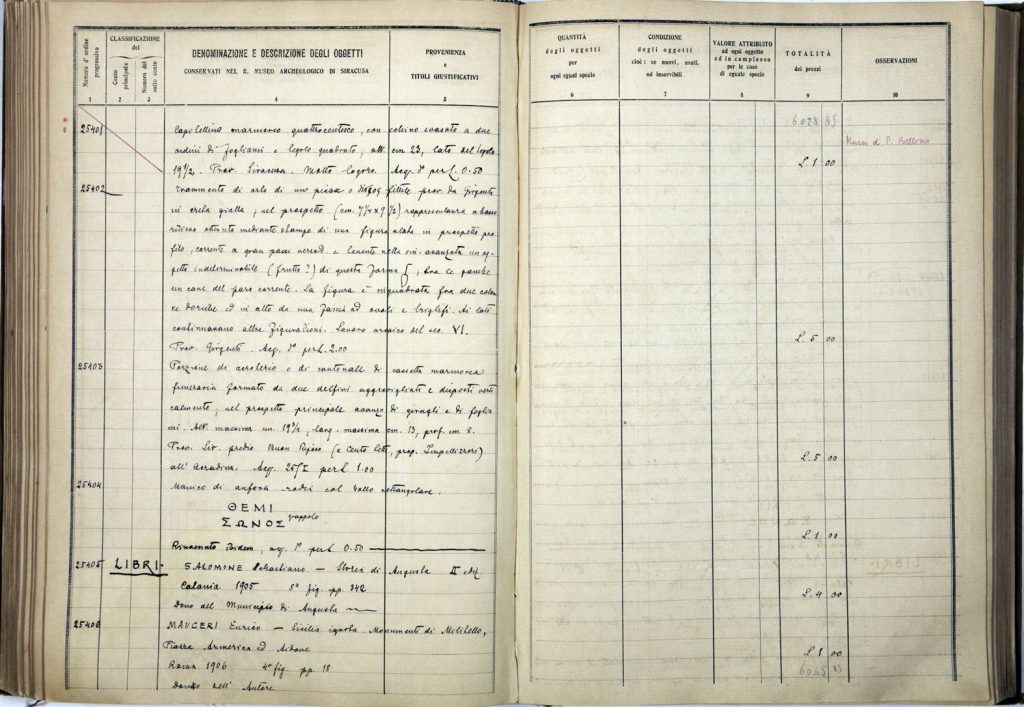 Numero d'ordine progressivo
CLASSIFICAZIONE
del
Conto principale
Numero del sotto conto
DENOMINAZIONE E DESCRIZIONE DEGLI OGGETTI
CONSERVATI NEL R. MUSEO ARCHEOLOGICO DI SIRACUSA
PROVENIENZA
e
TITOLI GIUSTIFICATIVI
1 2 3 4 5
25401 marmoreo quattrocentesco, con a due
ordini di fogliami e quadrato, alt. cm 23, lato del
19 1/2. Prov. Siracusa. Molto logoro. Acq. per L. 0.50
25402 Frammento di fittile prov. da Girgenti
in creta gialla; nel prospetto (cm. 7 1/4 x 9 1/2) rappresentanza a basso
rilievo ottenuto mediante stampo di una figura alata in prospetto pro
filo, corrente a gran passi verso d. e tenente nella avanzata un og-
getto indeterminabile (frutto?) di questa forma ; tra le gambe
un cane del pari corrente. La figura è inquadrata fra due colon
ne doriche ed in alto da una fascia ad ovali e triglifi. Ai lati
continuavano altre figurazioni. Lavoro arcaico del sec. VI.
Prov. Girgenti. Acq. per L. 2.00
25403 Porzione di acroterio o di cantonale di cassetta marmorea
funeraria formato da due delfini aggrovigliati e disposti verti
calmente, nel prospetto principale avanzo di giragli e di foglia
mi. Alt. massima cm. 19 3/4, larg. massima cm. 13, prof. cm. 8.
Prov. Sir. predio Buon Riposo (o Cento , prop. Impellizzeri)
all'Acradina. Acq. per L. 1.00
25404 Manico di anfora rodia col bollo rettangolare.
ΘΕΜΙ
ΣΩΝΟΣ grappolo
Rinvenuto , acq. per L. 0.50
25405 LIBRI. SALOMONE Sebastiano — Storia di Augusta II ediz
Catania 1905 8° fig. pp. 342
Dono del Municipio di Augusta
25406 MAUCERI Enrico — Sicilia ignota. Monumenti di Militello,
Piazza Armerina ed Aidone
Roma 1906 4° fig. pp. 18
Donato dall'Autore
QUANTITÀ
degli oggetti
per
ogni egual specie
CONDIZIONE
degli oggetti
cioè: se nuovi, usati,
od inservibili
VALORE ATTRIBUITO
ad ogni oggetto
ed in complesso
per le cose
di eguale specie
TOTALITÀ
dei prezzi
OSSERVAZIONI
6 7 8 9 10
6028 85
Museo di P. Bellomo
L. 1 00
L. 5 00
L. 5 00
L. 1 00
L. 4 00
L. 1 00
6045 85